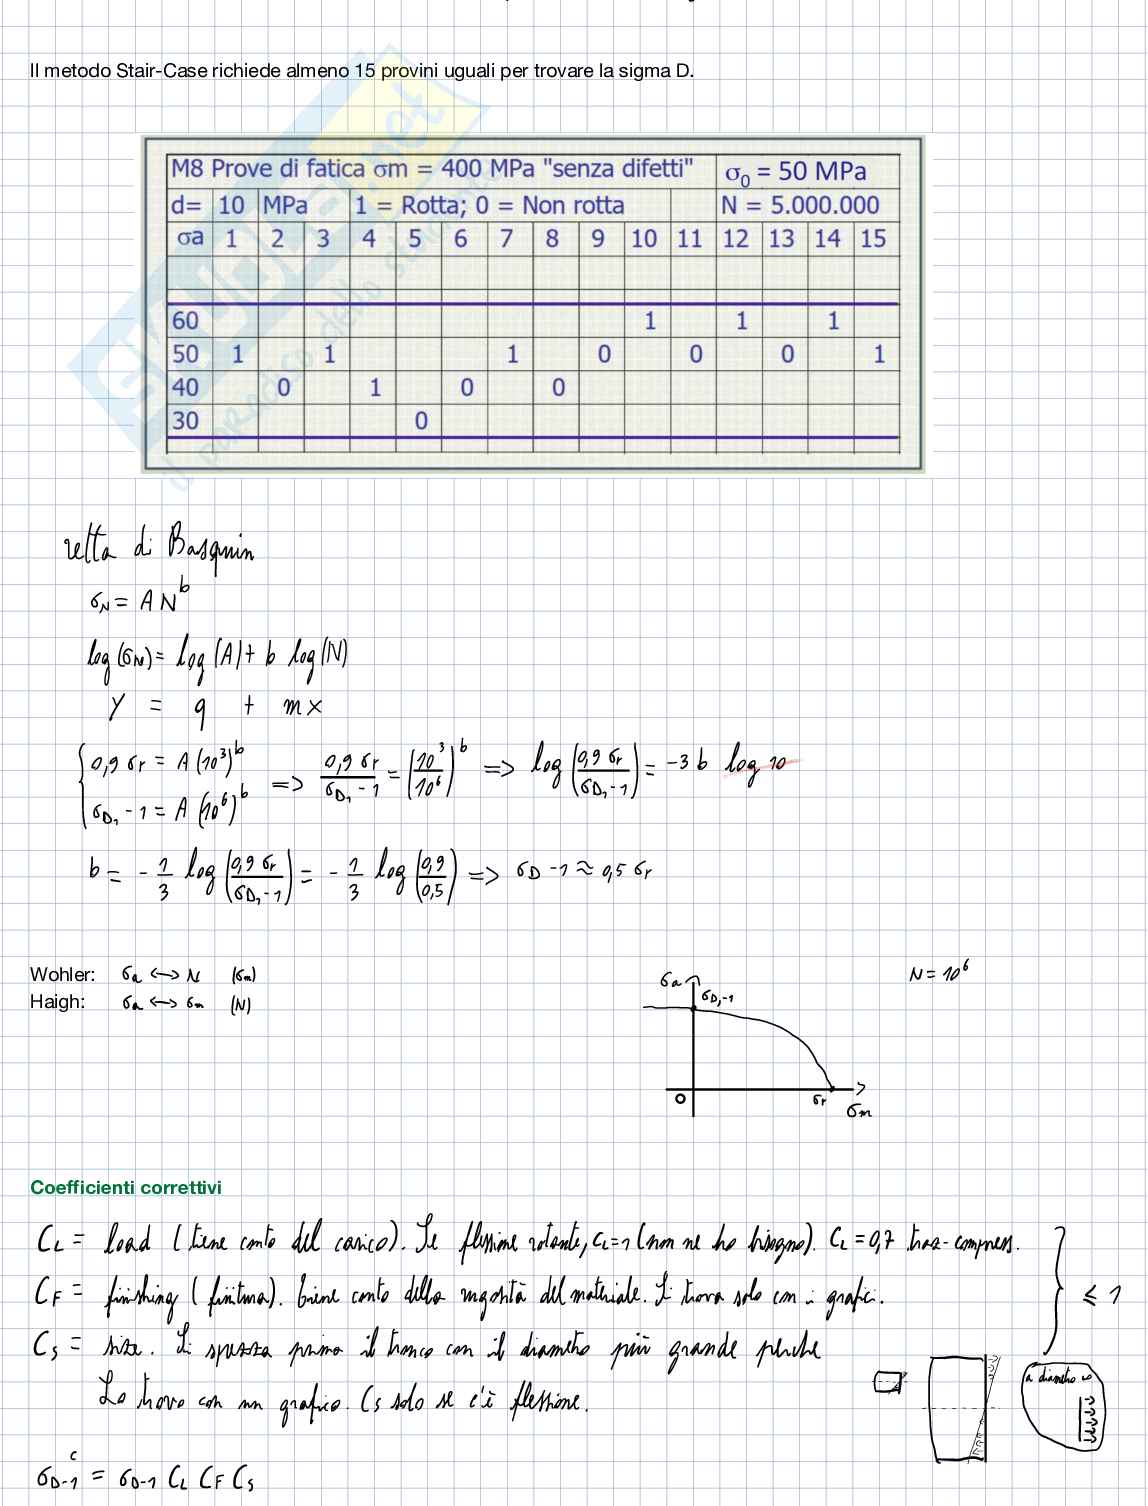 Il metodo Stair-Case richiede almeno 15 provini uguali per trovare la sigma D.
M8 Prove di fatica σm = 400 MPa "senza difetti" σ₀ = 50 MPa
d= 10 MPa 1 = Rotta; 0 = Non rotta N = 5.000.000
σa 1 2 3 4 5 6 7 8 9 10 11 12 13 14 15
60 1 1 1
50 1 1 1 0 0 0 1
40 0 1 0 0
30 0
retta di Basquin
σN = A N^b
log(σN) = log(A) + b log(N)
y = q + mx
0,9 σr = A (10³)^b
σD,-1 = A (10⁶)^b
=> 0,9 σr / σD,-1 = (10³/10⁶)^b => log(0,9 σr / σD,-1) = -3 b log 10
b = - 1/3 log(0,9 σr / σD,-1) = - 1/3 log(0,9/0,5) => σD-1 ≈ 0,5 σr
Wohler: σa <-> N (σm)
Haigh: σa <-> σm (N)
σa
σD,-1
N = 10⁶
O
σr
σm
Coefficienti correttivi
CL = load (tiene conto del carico). Se flessione rotante, CL=1 (non ne ho bisogno). CL = 0,7 traz-compress.
CF = finishing (finitura). Tiene conto della rugosità del materiale. Si trova solo con i grafici.
≤ 1
CS = size. Si spezza prima il tronco con il diametro più grande perché
a diametro ∞
Lo trovo con un grafico. CS solo se c'è flessione.
σD-1^c = σD-1 CL CF CS